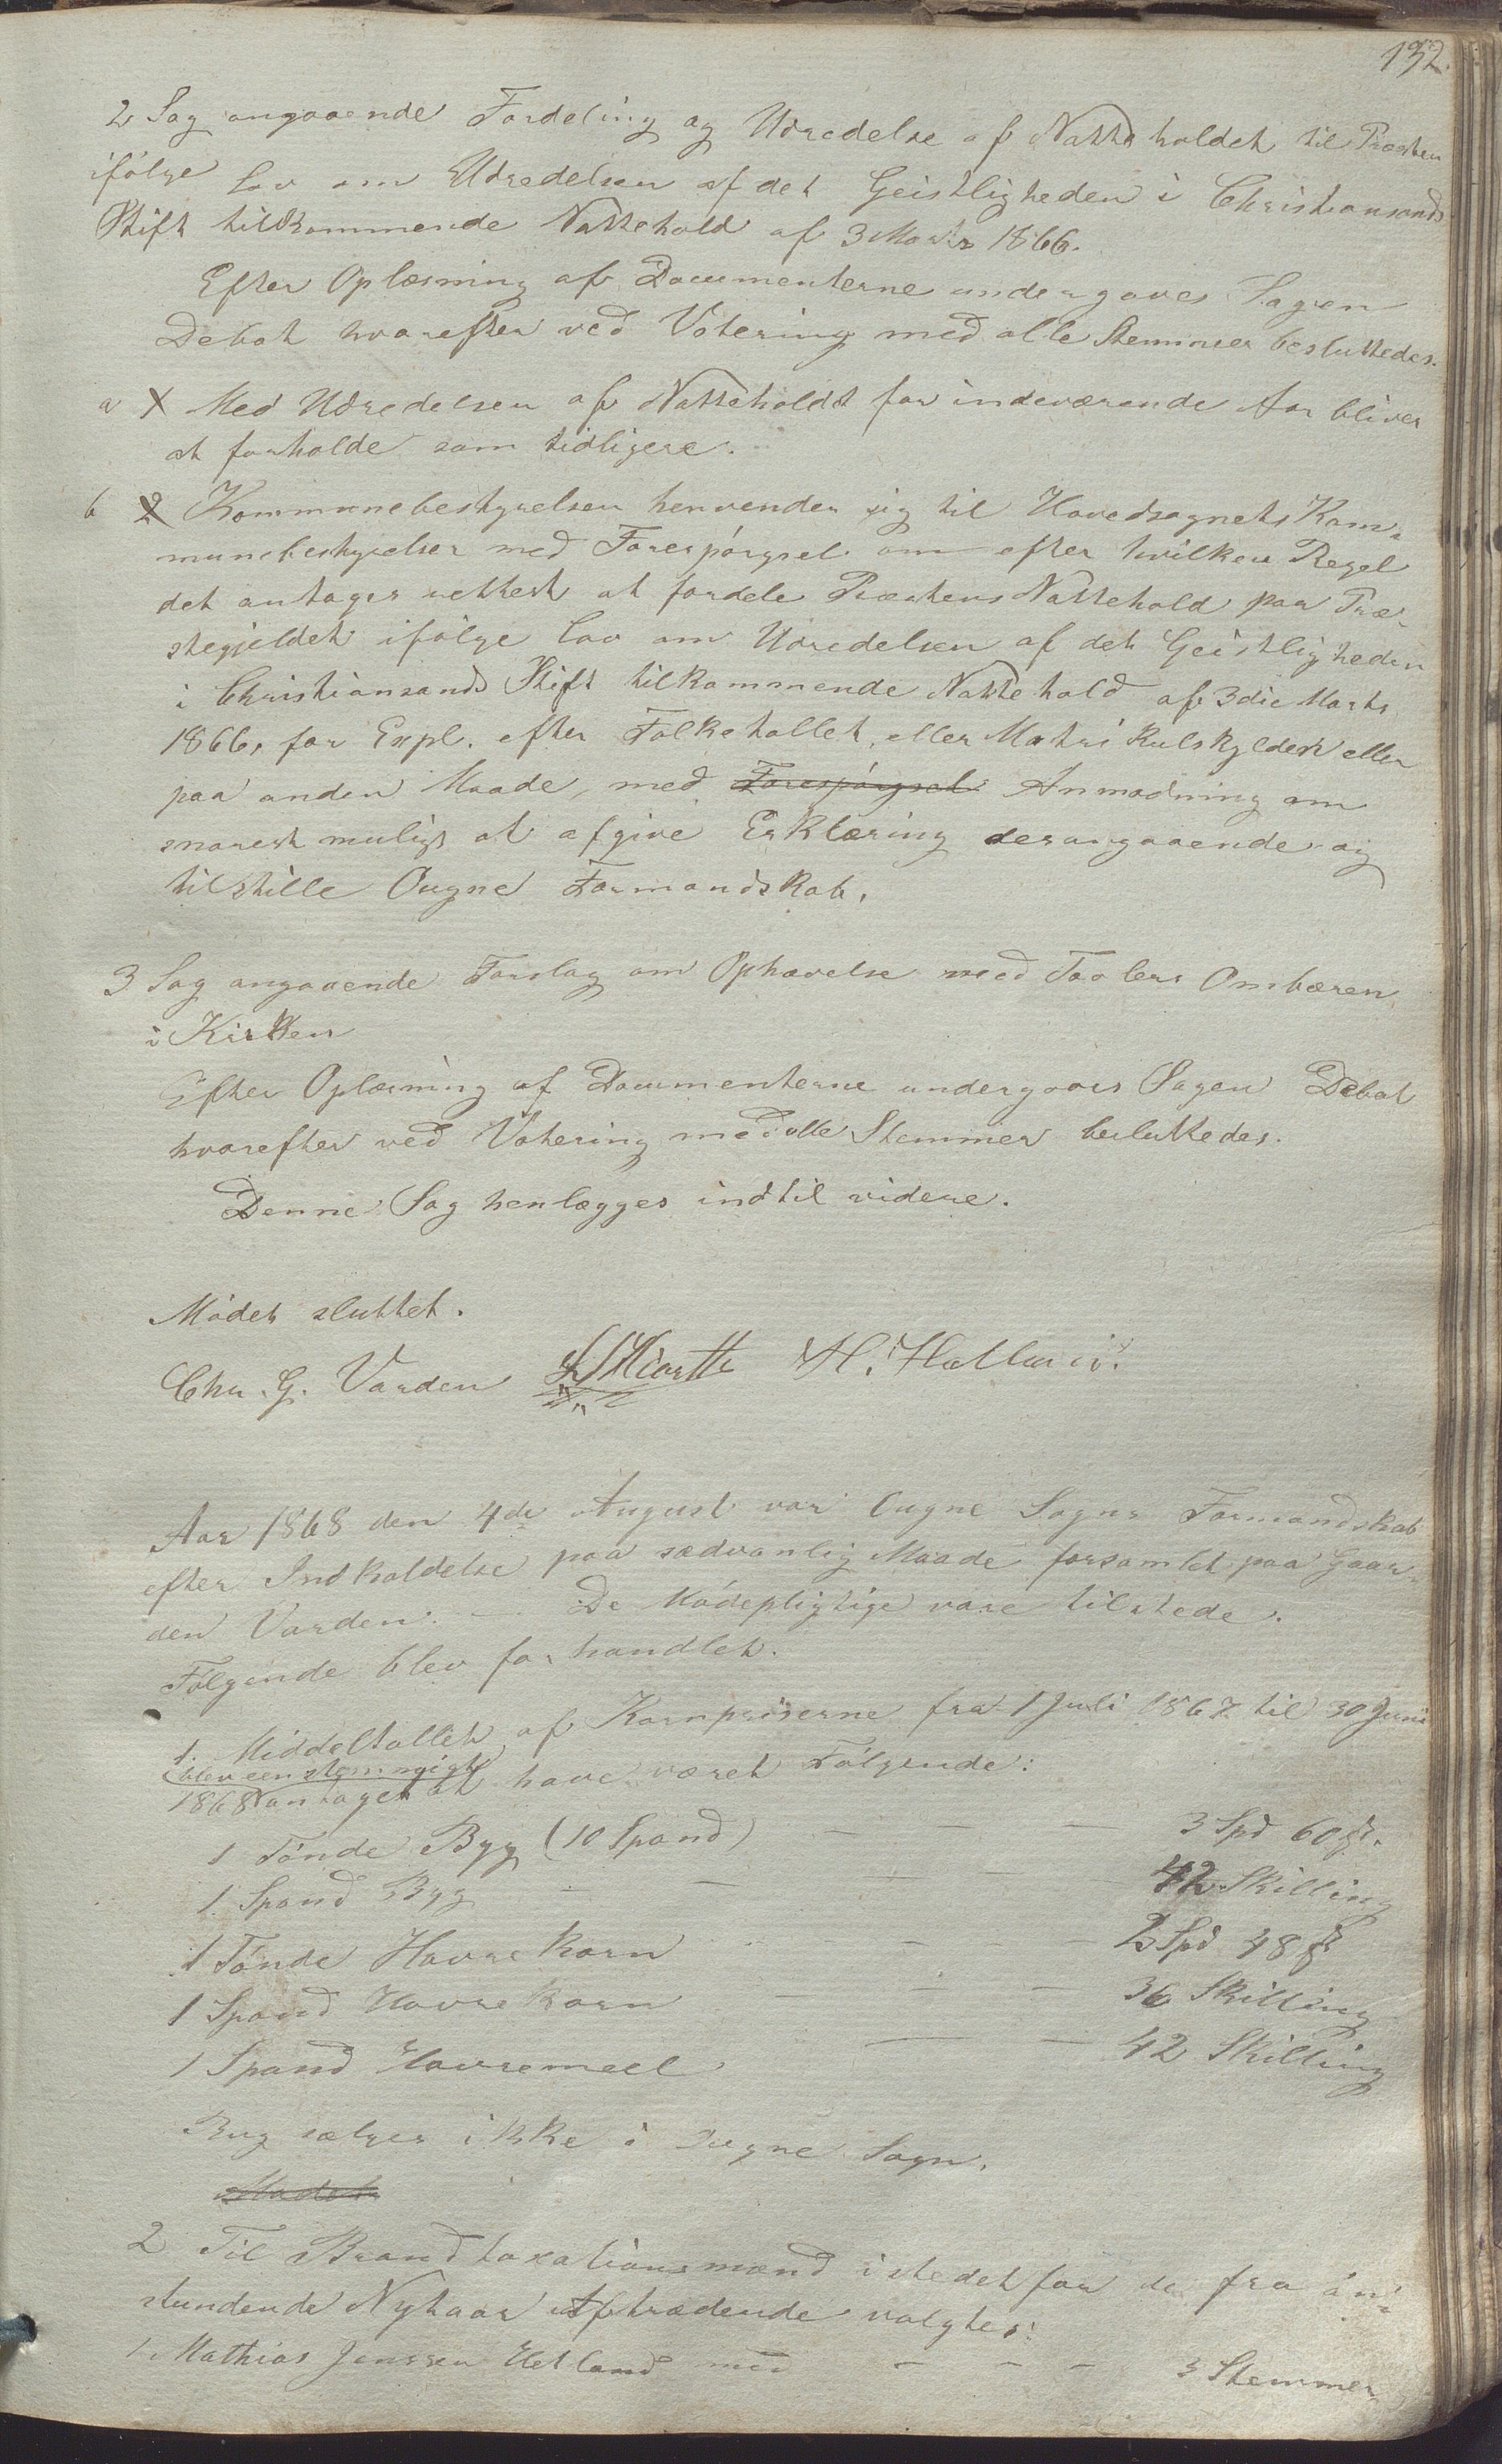 132.
2 Sag angaaende Fordeling og Udredelse af Natteholdet til Præsten
ifölge Lov om Udredelsen af det Geistligheden i Christiansands
Stift tilkommende Nattehold af 3 Marts 1866.
Efter Oplæsning af Documenterne undergaves Sagen
Debat hvorefter ved Votering med alle Stemmer besluttedes.
a Med Udredelsen af Natteholdet for indeværende Aar bliver
at forholde som tidligere.
b 2 Kommunebestyrelsen henvender sig til Hovedsognets Kom-
munebestyrelse med Forespörgsel om efter hvilken Regel
det antages rettest at fordele Præstens Nattehold paa Præ-
stegjeldet ifölge Lov om Udredelsen af det Geistligheden
i Christiansands Stift tilkommende Nattehold af 3die Marts
1866, for Expl. efter Folketallet, eller Matrikulskylden eller
paa anden Maade, med Forespörgsel Anmodning om
snarest muligt at afgive Erklæring derangaaende og
tilstille Ougne Formandskab.
3 Sag angaaende Forslag om Ophævelse med Tavlers Ombæren
i Kirken
Efter Oplæsning af Documenterne undergaves Sagen Debat
hvorefter ved Votering med alle Stemmer besluttedes.
Denne Sag henlægges indtil videre.
Mödet sluttet.
Chr. G. Varden
Aar 1868 den 4de August var Ougne Sogns Formandskab
efter Indkaldelse paa sædvanlig Maade forsamlet paa Gaar-
den Varden. – De Mödepligtige vare tilstede.
Fölgende blev forhandlet.
1. Middeltallet af Kornpriserne fra 1 Juli 1867 til 30 Juni
blev eenstemmigt
1868 antaget at have været Fölgende:
1 Tönde Byg (10 Spand) – – – 3 Spd 60 ß.
1 Spand Byg – – – – 42 Skilling
1 Tönde Havrekorn – – – 2 Spd 48 ß
1 Spand Havrekorn – – – 36 Skilling
1 Spand Havremeel – – 42 Skilling
Rug sælges ikke i Ougne Sogn.
Mödet
2 Til Brandtaxationsmænd istedetfor de fra an-
stundende Nytaar Aftrædende valgtes:
1. Mathias Jensen Hetland med – – – 3 Stemmer